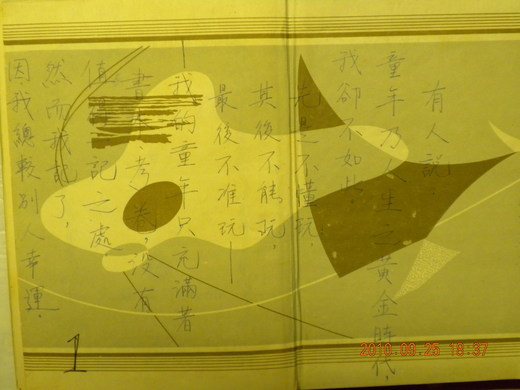 有人說,
童年乃人生之黃金時代,
我卻不如此,
先是不懂玩,
其後不能玩,
最後不准玩——
我的童年只充滿著
書、考卷,沒有
值記之處
然而我記了,
因我總較別人幸運.
1
2010.09.25 18:37